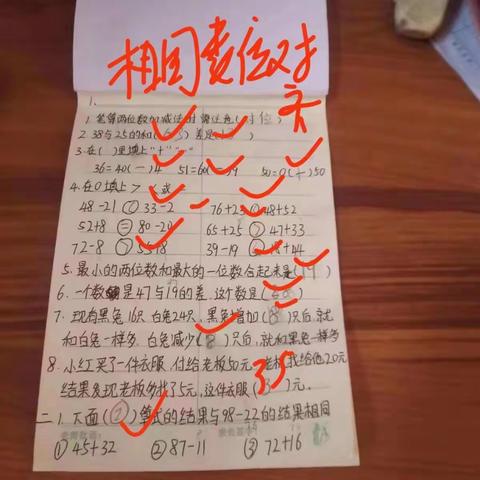 相同数位对齐
一、
1. 笔算两位数加减法时,请注意(对位)
2. 38与25的和(63) 差是(13)
3. 在( )里填上"+""-"
36=40(-)4 51=60(-)9 50=0(+)50
4. 在○填上> < 或=
48-21 33-2 76+23 48+52
52+8 = 80-20 65+25 > 47+33
72-8 > 55+8 39-19 18+44
5. 最小的两位数和最大的一位数合起来是(19)
6. 一个数是47与19的差,这个数是( )
7. 现有黑兔16只,白兔24只,黑兔增加(8)只后,就
和白兔一样多,白兔减少(8)只后,就和黑兔一样多
8. 小红买了一件衣服,付给老板50元,老板找给他20元
结果发现老板多找了5元,这件衣服(35)元.
二、1. 下面(②)算式的结果与98-22的结果相同
①45+32 ②87-11 ③72+16